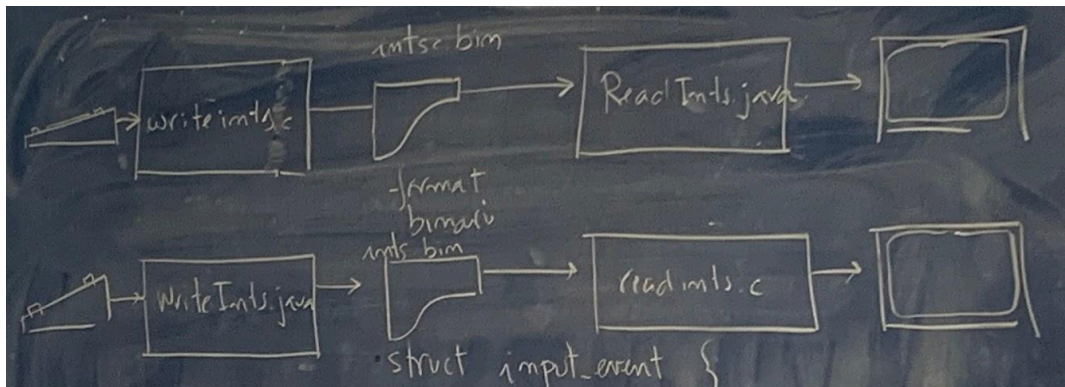 intsc.bin
writeints.c
ReadInts.java
format
binari
ints.bin
WriteInts.java
readints.c
struct input_event {